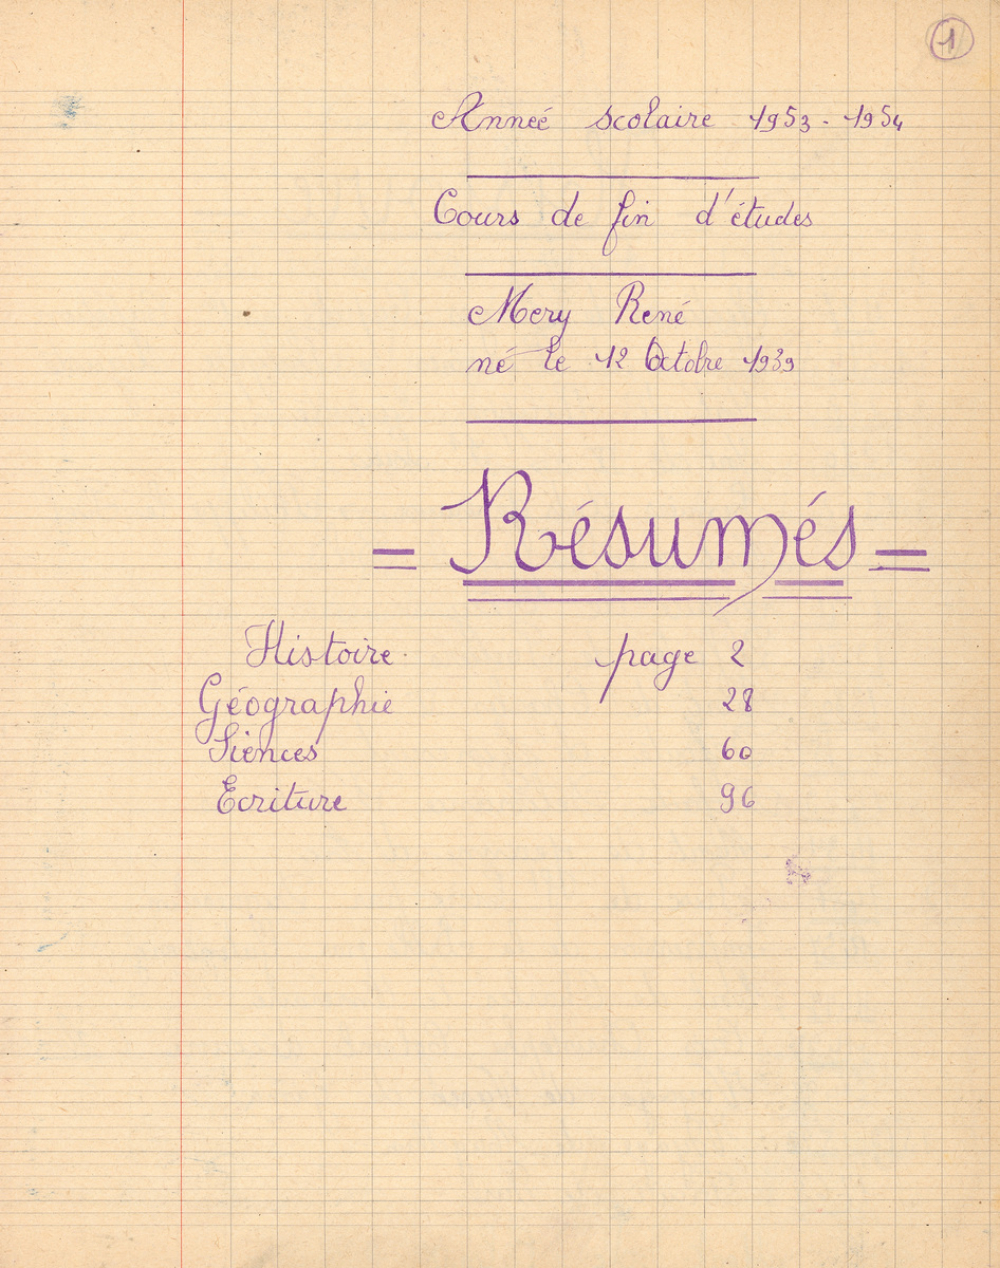 1
Anneé scolaire 1953 - 1954
Cours de fin d'études
Mery René
né le 12 Octobre 1939
= Résumés =
Histoire page 2
Géographie 28
Siences 60
Ecriture 96